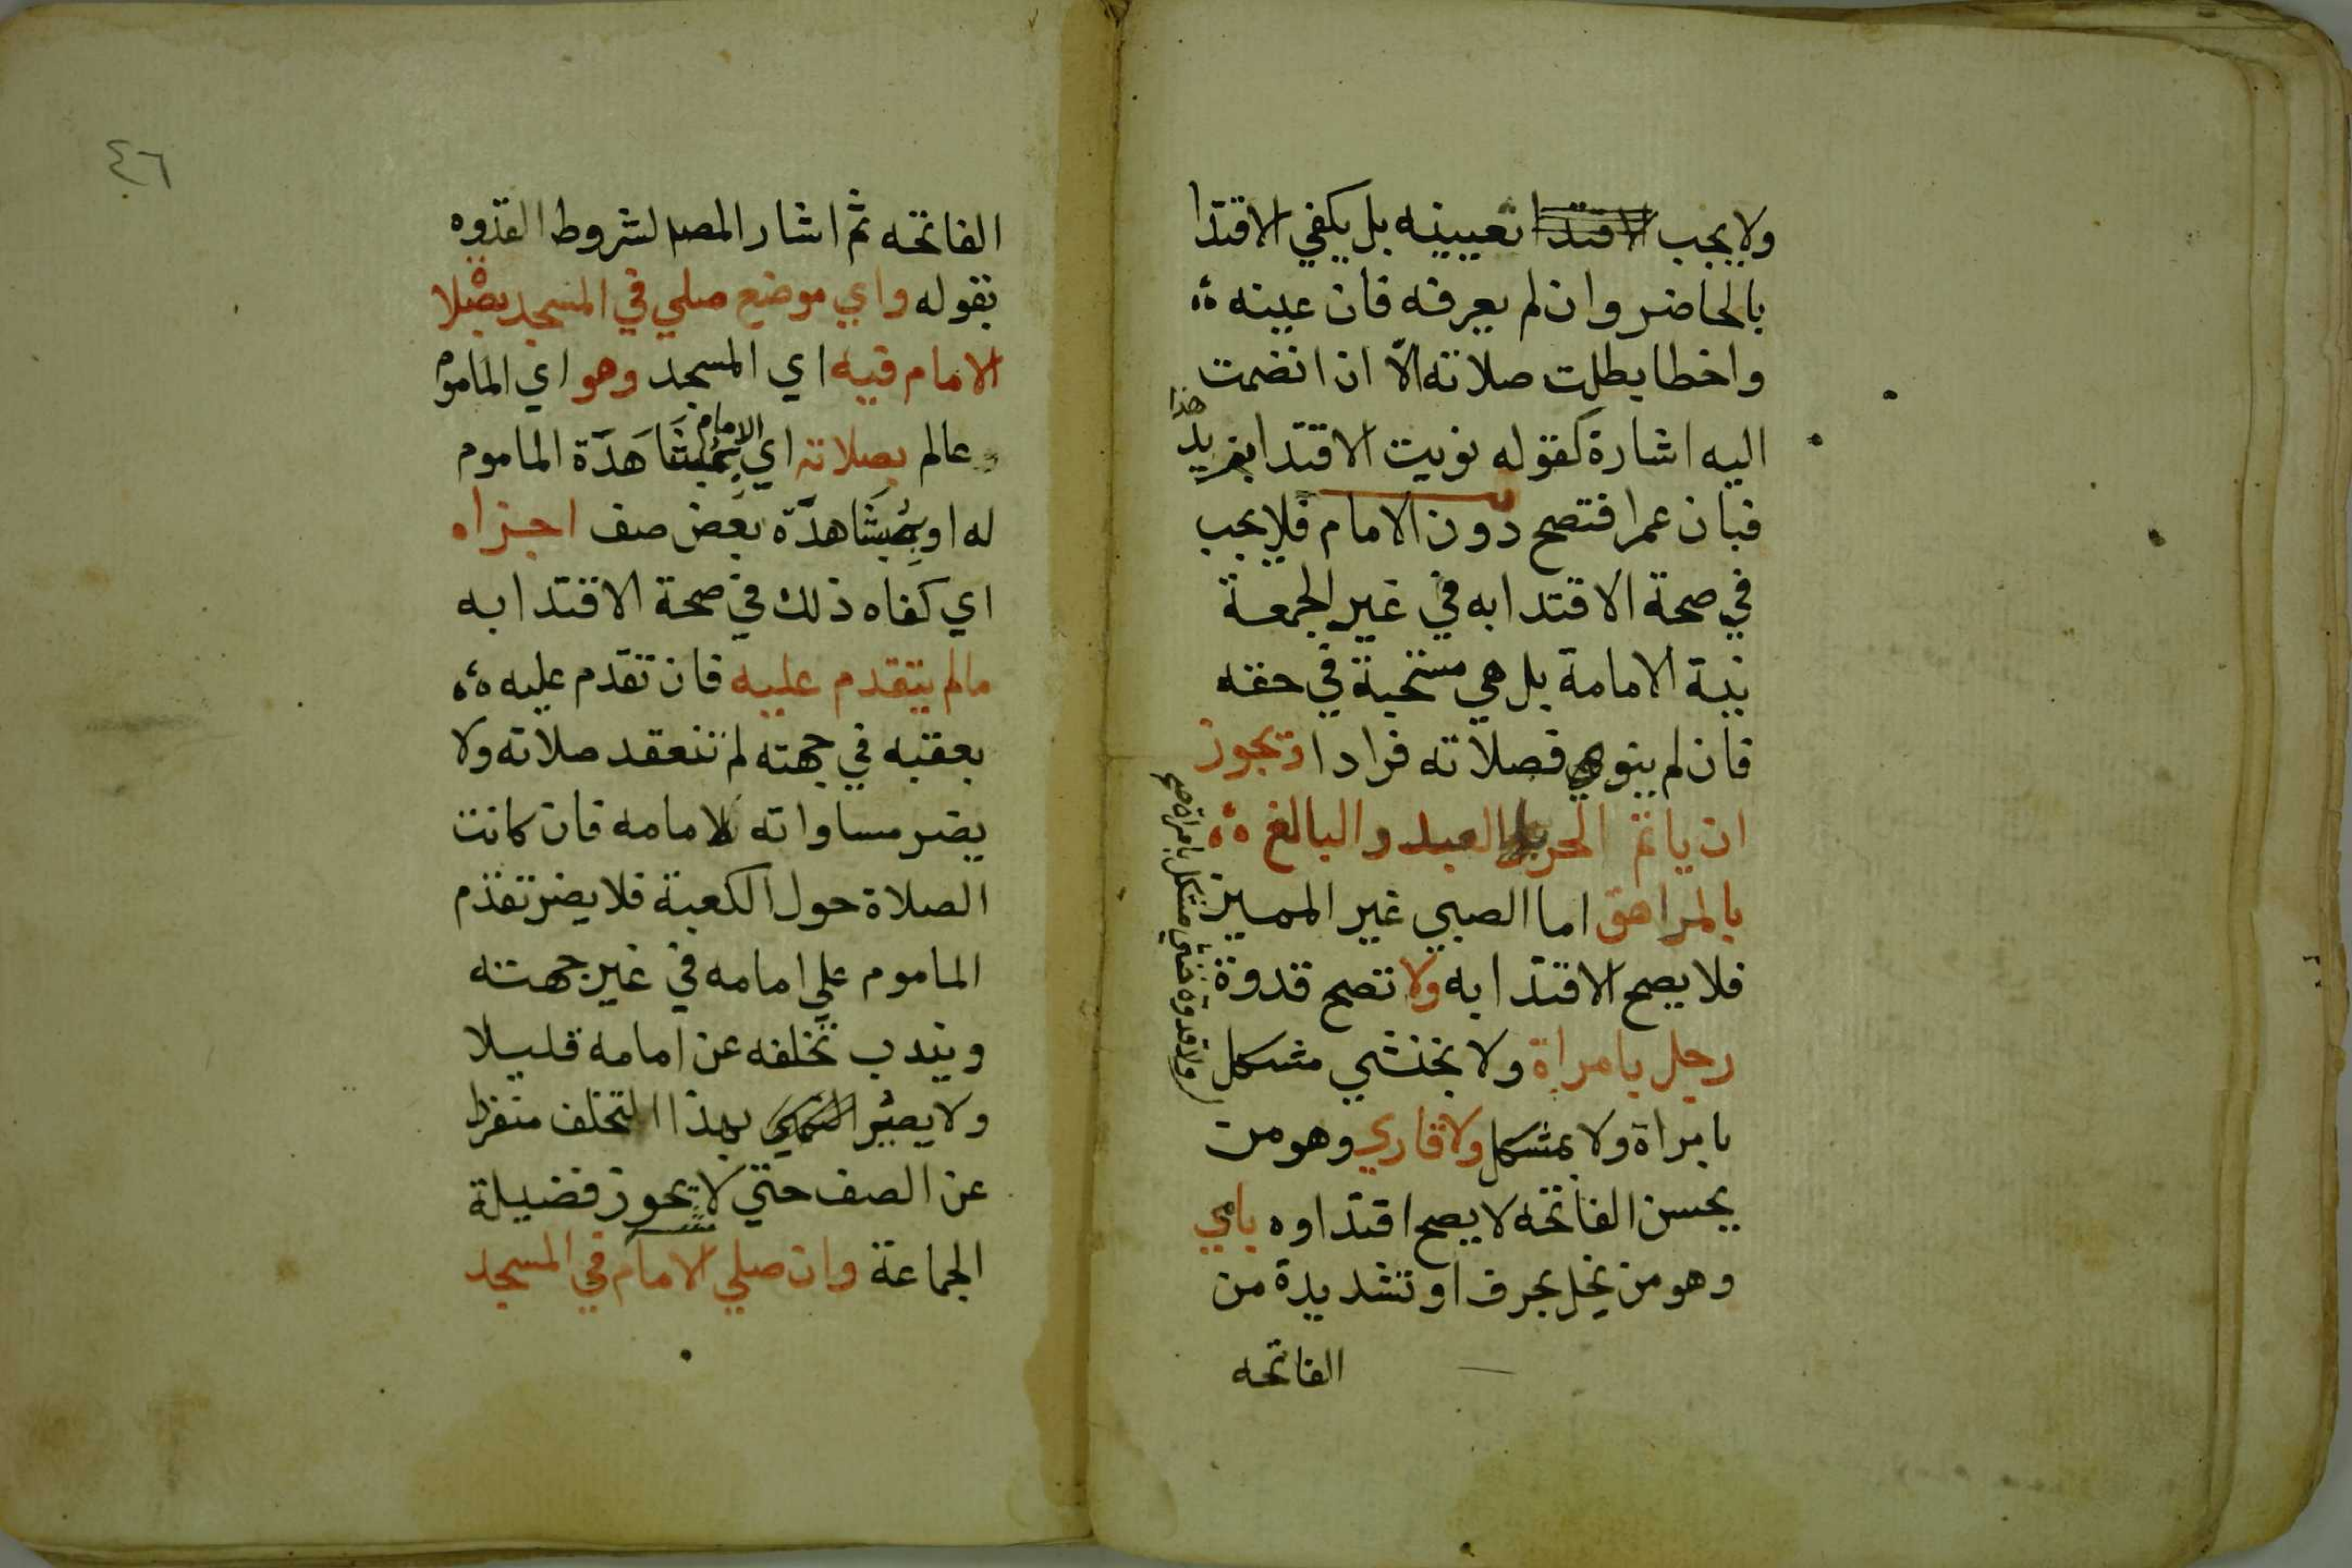 ولا يجب الاقتدا تعيينه بل يكفي الاقتدا
بالحاضر وان لم يعرفه فان عينه
واخطا بطلت صلاته الا ان انضمت
اليه اشارة كقوله نويت الاقتدا بزيد
هذا
فبان عمرا فتصح دون الامام فلا يجب
في صحة الاقتدا به في غير الجمعة
نية الامامة بل هي مستحبة في حقه
فان لم ينو فصلاته فرادا ويجوز
ان ياتم الحر بالعبد والبالغ
بالمراهق اما الصبي غير المميز
فلا يصح الاقتدا به ولا تصح قدوة
رجل بامراة ولا بخنثي مشكل
ولا قدوة خنثي مشكل بامراة صح
بامراة ولا بمشكل ولا قاري وهو من
يحسن الفاتحه لا يصح اقتداوه بامي
وهو من يخل بحرف او تشديدة من
الفاتحه
٤٦
الفاتحه ثم اشار المصم لشروط القدوه
بقوله واي موضع صلي في المسجد بصلا
ة
الامام فيه اي المسجد وهو اي الماموم
عالم بصلاته اي بمشاهدة الماموم
الامام
له او بمشاهدة بعض صف اجزاه
اي كفاه ذلك في صحة الاقتدا به
مالم يتقدم عليه فان تقدم عليه
بعقبه في جهته لم تنعقد صلاته ولا
يضر مساواته لامامه فان كانت
الصلاة حول الكعبة فلا يضر تقدم
الماموم علي امامه في غير جهته
ويندب تخلفه عن امامه قليلا
ولا يصير بهذا التخلف منفردا
عن الصف حتي لا يحوز فضيلة
الجماعة وان صلي الامام في المسجد